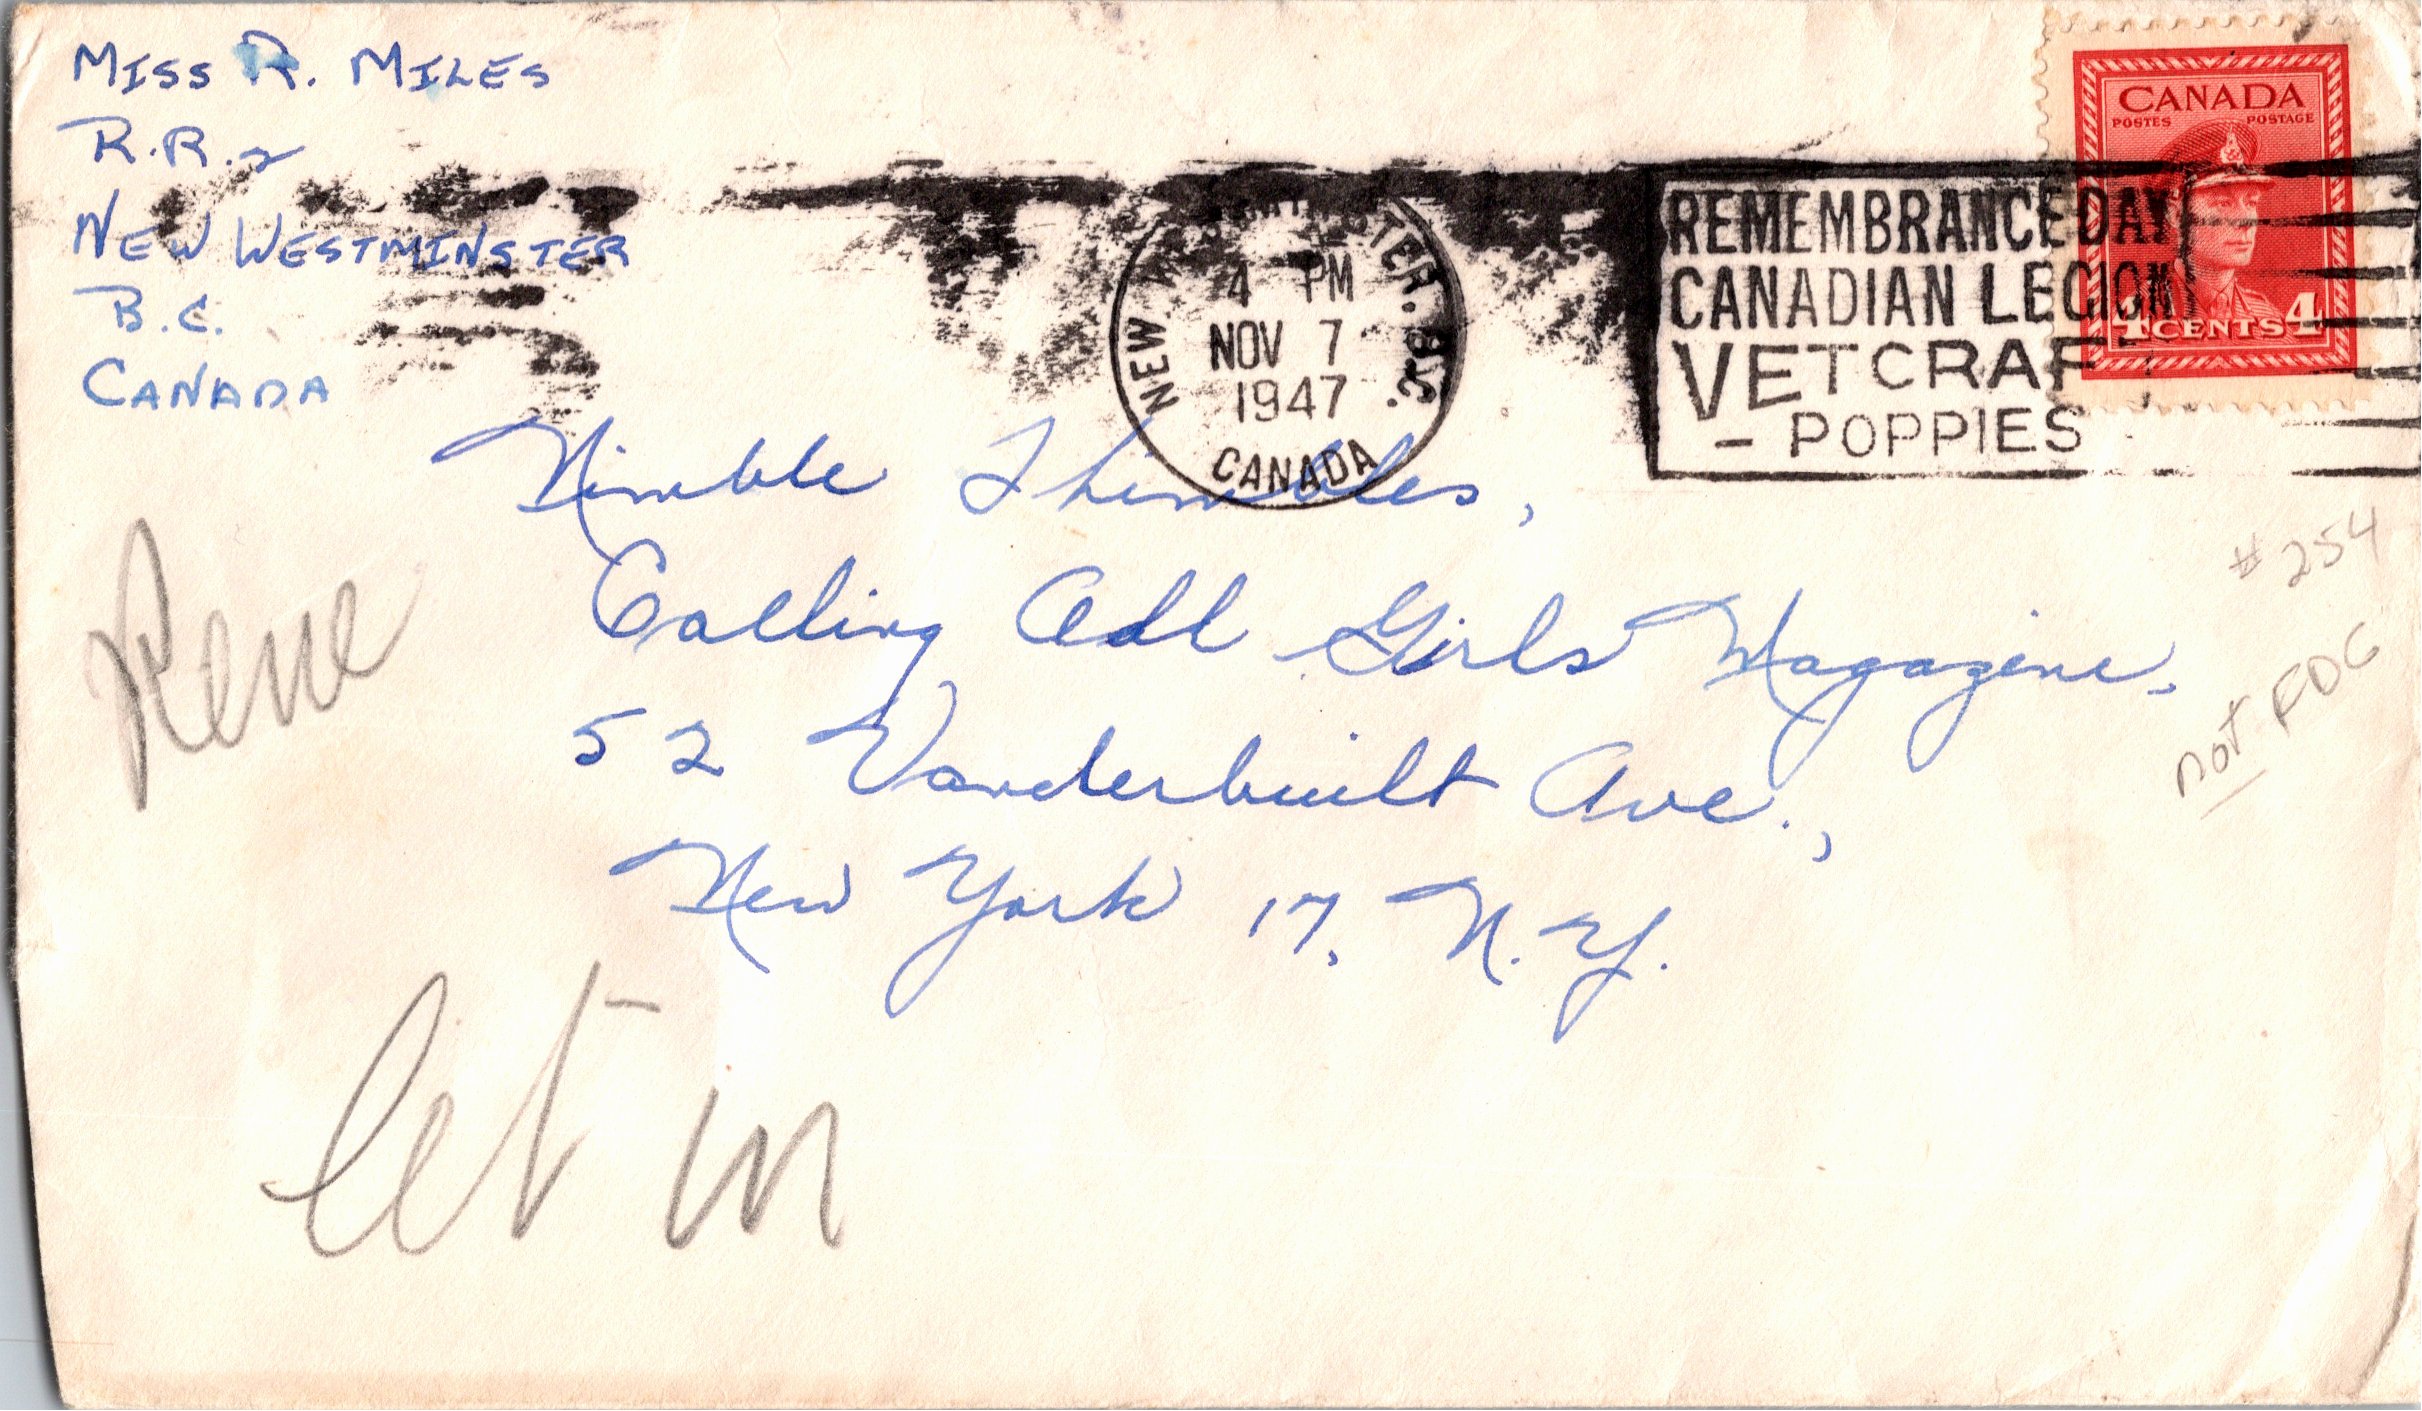 MISS R. MILES
R.R.2
NEW WESTMINSTER
B.C.
CANADA
NEW WESTMINSTER. B.C.
4 PM
NOV 7
1947
CANADA
REMEMBRANCE DAY
CANADIAN LEGION
VETCRAF
- POPPIES
CANADA
POSTES POSTAGE
4 CENTS 4
Nimble Thimbles,
Calling All Girls Magazine,
52 Vanderbuilt Ave.,
New York 17, N.Y.
Rene
let in
# 254
not FDC